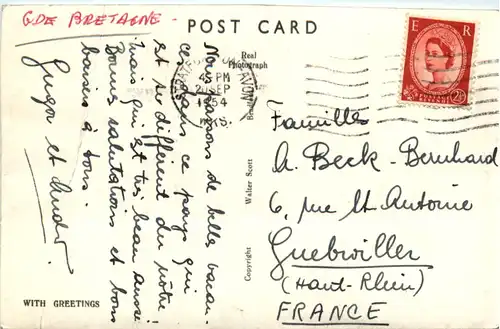 GDE BRETAGNE -
POST CARD
Real
Photograph
Copyright Walter Scott
WITH GREETINGS
E R
2½
4 PM
20 SEP
1954
Nous passons de belles vacan-
ces dans ce pays qui
est si différent du nôtre
mais qui est très beau aussi
Bonnes salutations et bons
baisers à tous.
Familles
A. Beck-Bernhard
6, rue St Antoine
Guebwiller
(Haut-Rhin)
FRANCE